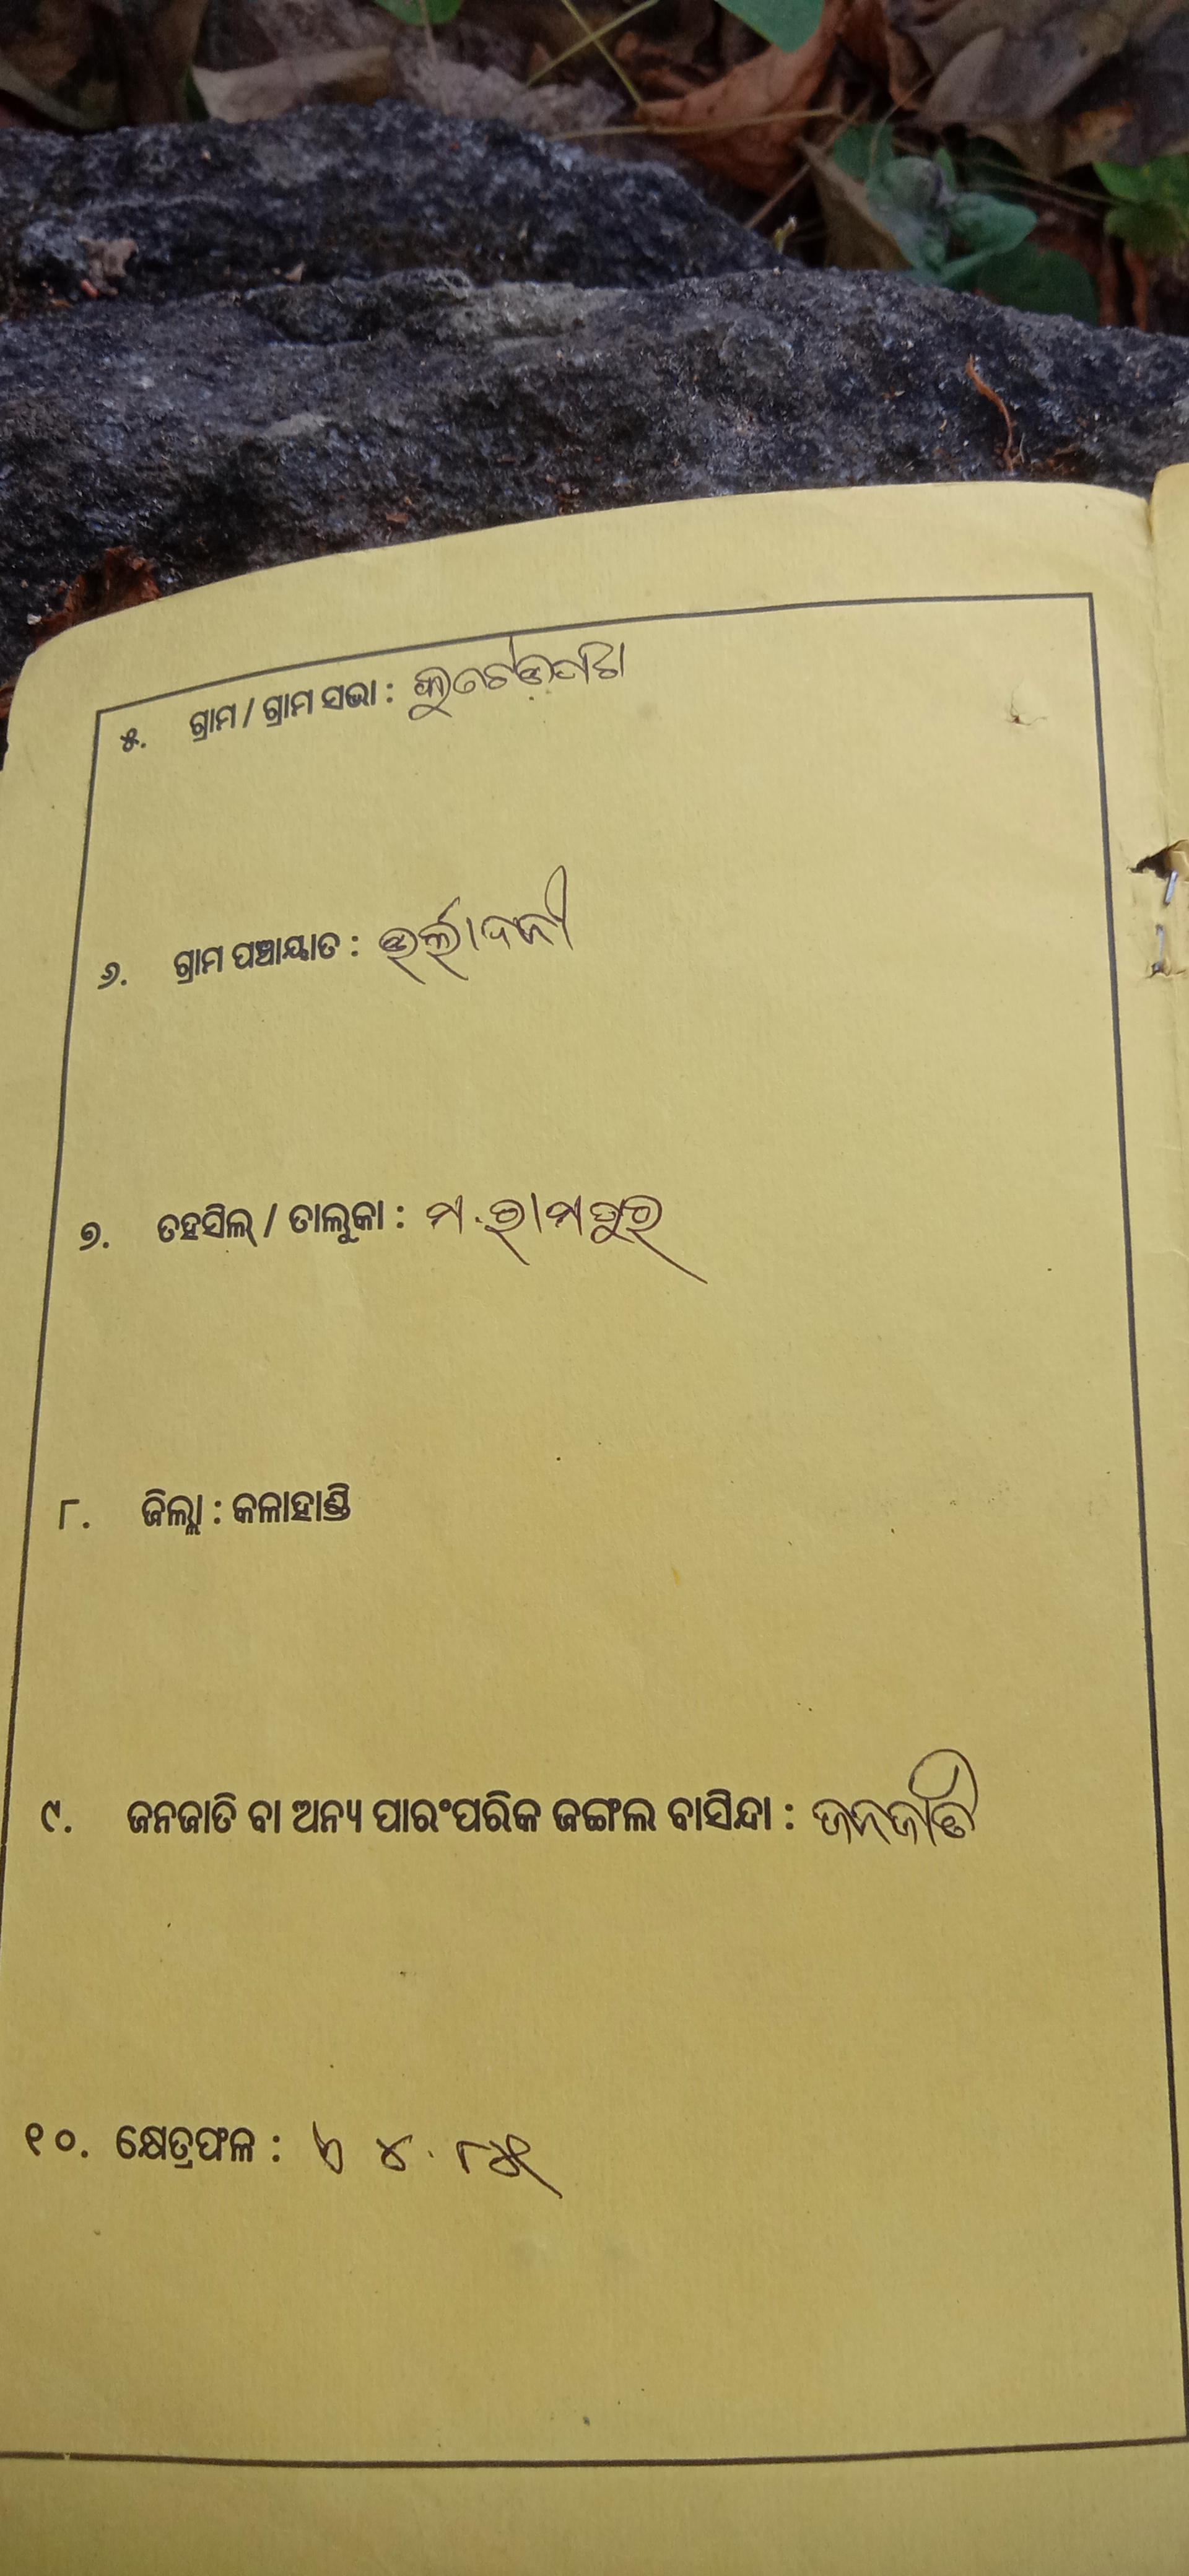 ୫. ଗ୍ରାମ / ଗ୍ରାମ ସଭା :
୬. ଗ୍ରାମ ପଞ୍ଚାୟାତ :
୭. ତହସିଲ୍ / ତାଲୁକା : ମ.ରାମପୁର
୮. ଜିଲ୍ଲା : କଳାହାଣ୍ଡି
୯. ଜନଜାତି ବା ଅନ୍ୟ ପାରଂପରିକ ଜଙ୍ଗଲ ବାସିନ୍ଦା : ଜନଜାତି
୧୦. କ୍ଷେତ୍ରଫଳ :